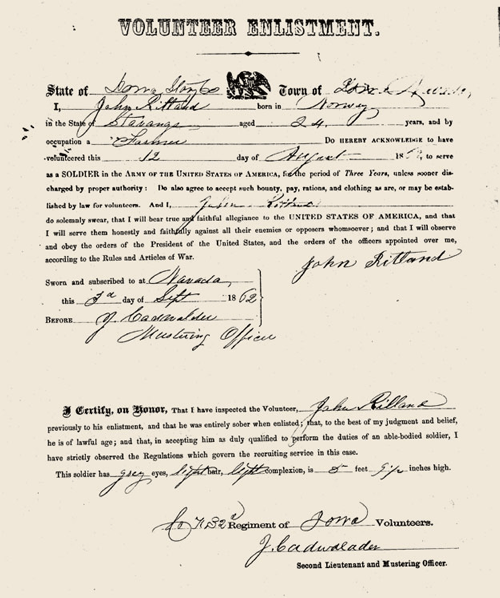 VOLUNTEER ENLISTMENT.
State of Iowa Town of
I, John Ritland born in Norway
in the State of Stavanger aged 24 years, and by
occupation a Farmer Do HEREBY ACKNOWLEDGE to have
volunteered this 12 day of August 186 , to serve
as a SOLDIER in the ARMY OF THE UNITED STATES OF AMERICA, for the period of Three Years, unless sooner dis-
charged by proper authority: Do also agree to accept such bounty, pay, rations and clothing as are, or may be estab-
lished by law for volunteers. And I, John Ritland
do solemnly swear, that I will bear true and faithful allegiance to the UNITED STATES OF AMERICA, and that
I will serve them honestly and faithfully against all their enemies or opposers whomsoever; and that I will observe
and obey the orders of the President of the United States, and the orders of the officers appointed over me,
according to the Rules and Articles of War.
John Ritland
Sworn and subscribed to at Nevada
this 3d day of Sept 1862
BEFORE J. Cadwalader
Mustering Officer
I Certify, on Honor, That I have inspected the Volunteer, John Ritland
previously to his enlistment, and that he was entirely sober when enlisted; that, to the best of my judgment and belief,
he is of lawful age; and that, in accepting him as duly qualified to perform the duties of an able-bodied soldier, I
have strictly observed the Regulations which govern the recruiting service in this case.
This soldier has grey eyes, light hair, light complexion, is 5 feet 9½ inches high.
Co K 32d Regiment of Iowa Volunteers.
J. Cadwalader
Second Lieutenant and Mustering Officer.